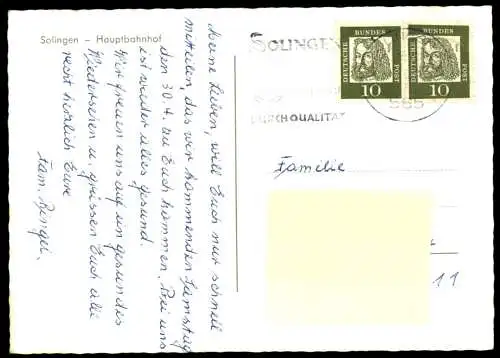 Solingen – Hauptbahnhof
Meine Lieben, will Euch nur schnell
mitteilen, das wir kommenden Samstag
den 30.4. zu Euch kommen. Bei uns
ist wieder alles gesund.
Wir freuen uns auf ein gesundes
Wiedersehen u. grüssen Euch alle
recht herzlich Eure
Fam. Rengel.
SOLINGEN
DURCH QUALITÄT
565
DEUTSCHE BUNDES POST
10
DEUTSCHE BUNDES POST
10
Familie
11